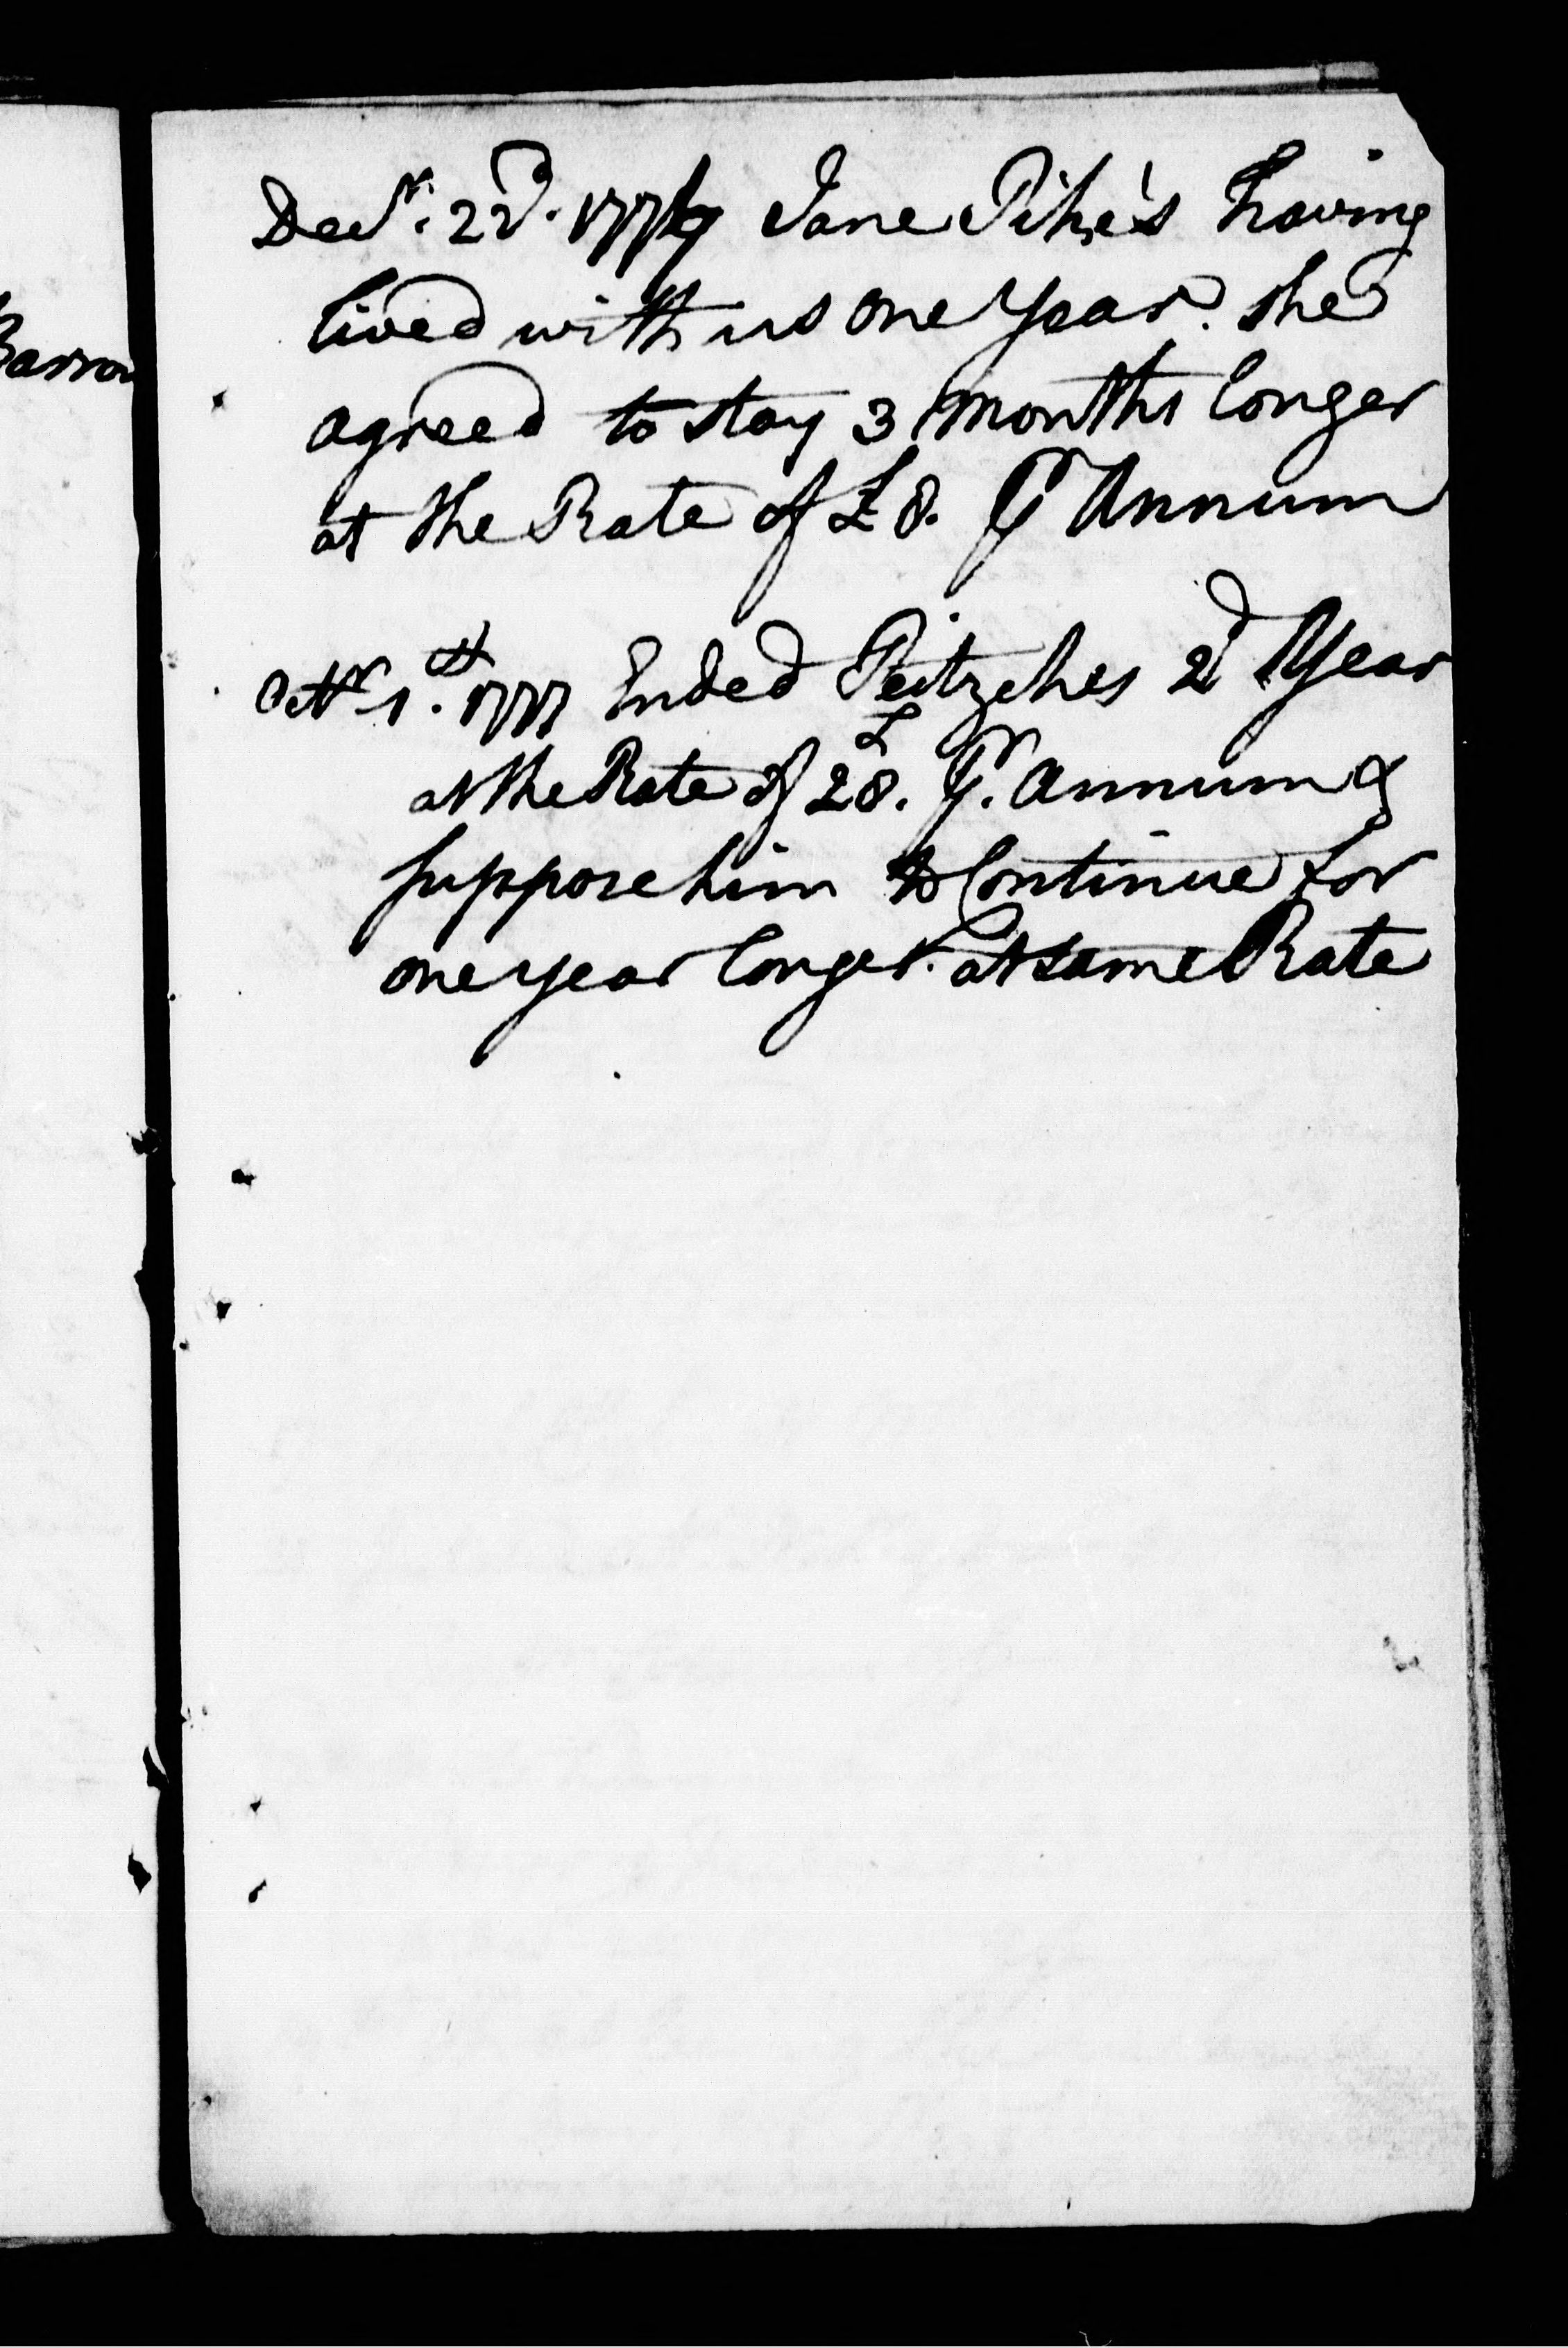 Decr. 22d. 1779 Jane Pike's having
lived with us one Year. she
agreed to stay 3 Months longer
at the Rate of £8. Pr Annum
Octr 1st. 1777 Ended Peitzches 2d Year
at the Rate of £28. Pr. Annum &
suppose him to Continue for
one year longer at same Rate